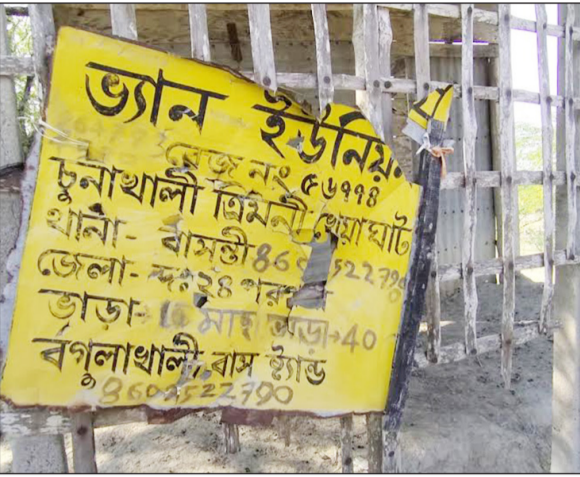 ভ্যান ইউনিয়ন
রেজ নং ৫৬৭৭৪
চুনাখালী ত্রিমনী খেয়াঘাট
থানা - বাসন্তী
জেলা - দঃ ২৪ পরগনা
ভাড়া - মাছ আড়ৎ 40
বগুলাখালী বাস ষ্ট্যান্ড